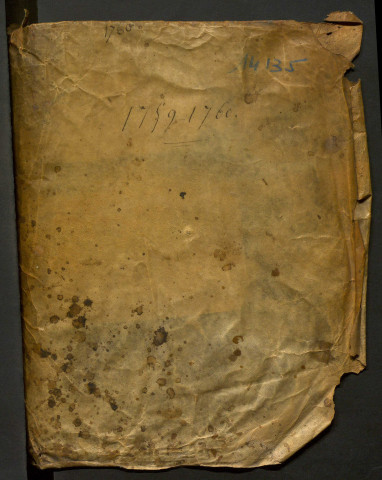 1760
14135
1759-1760.